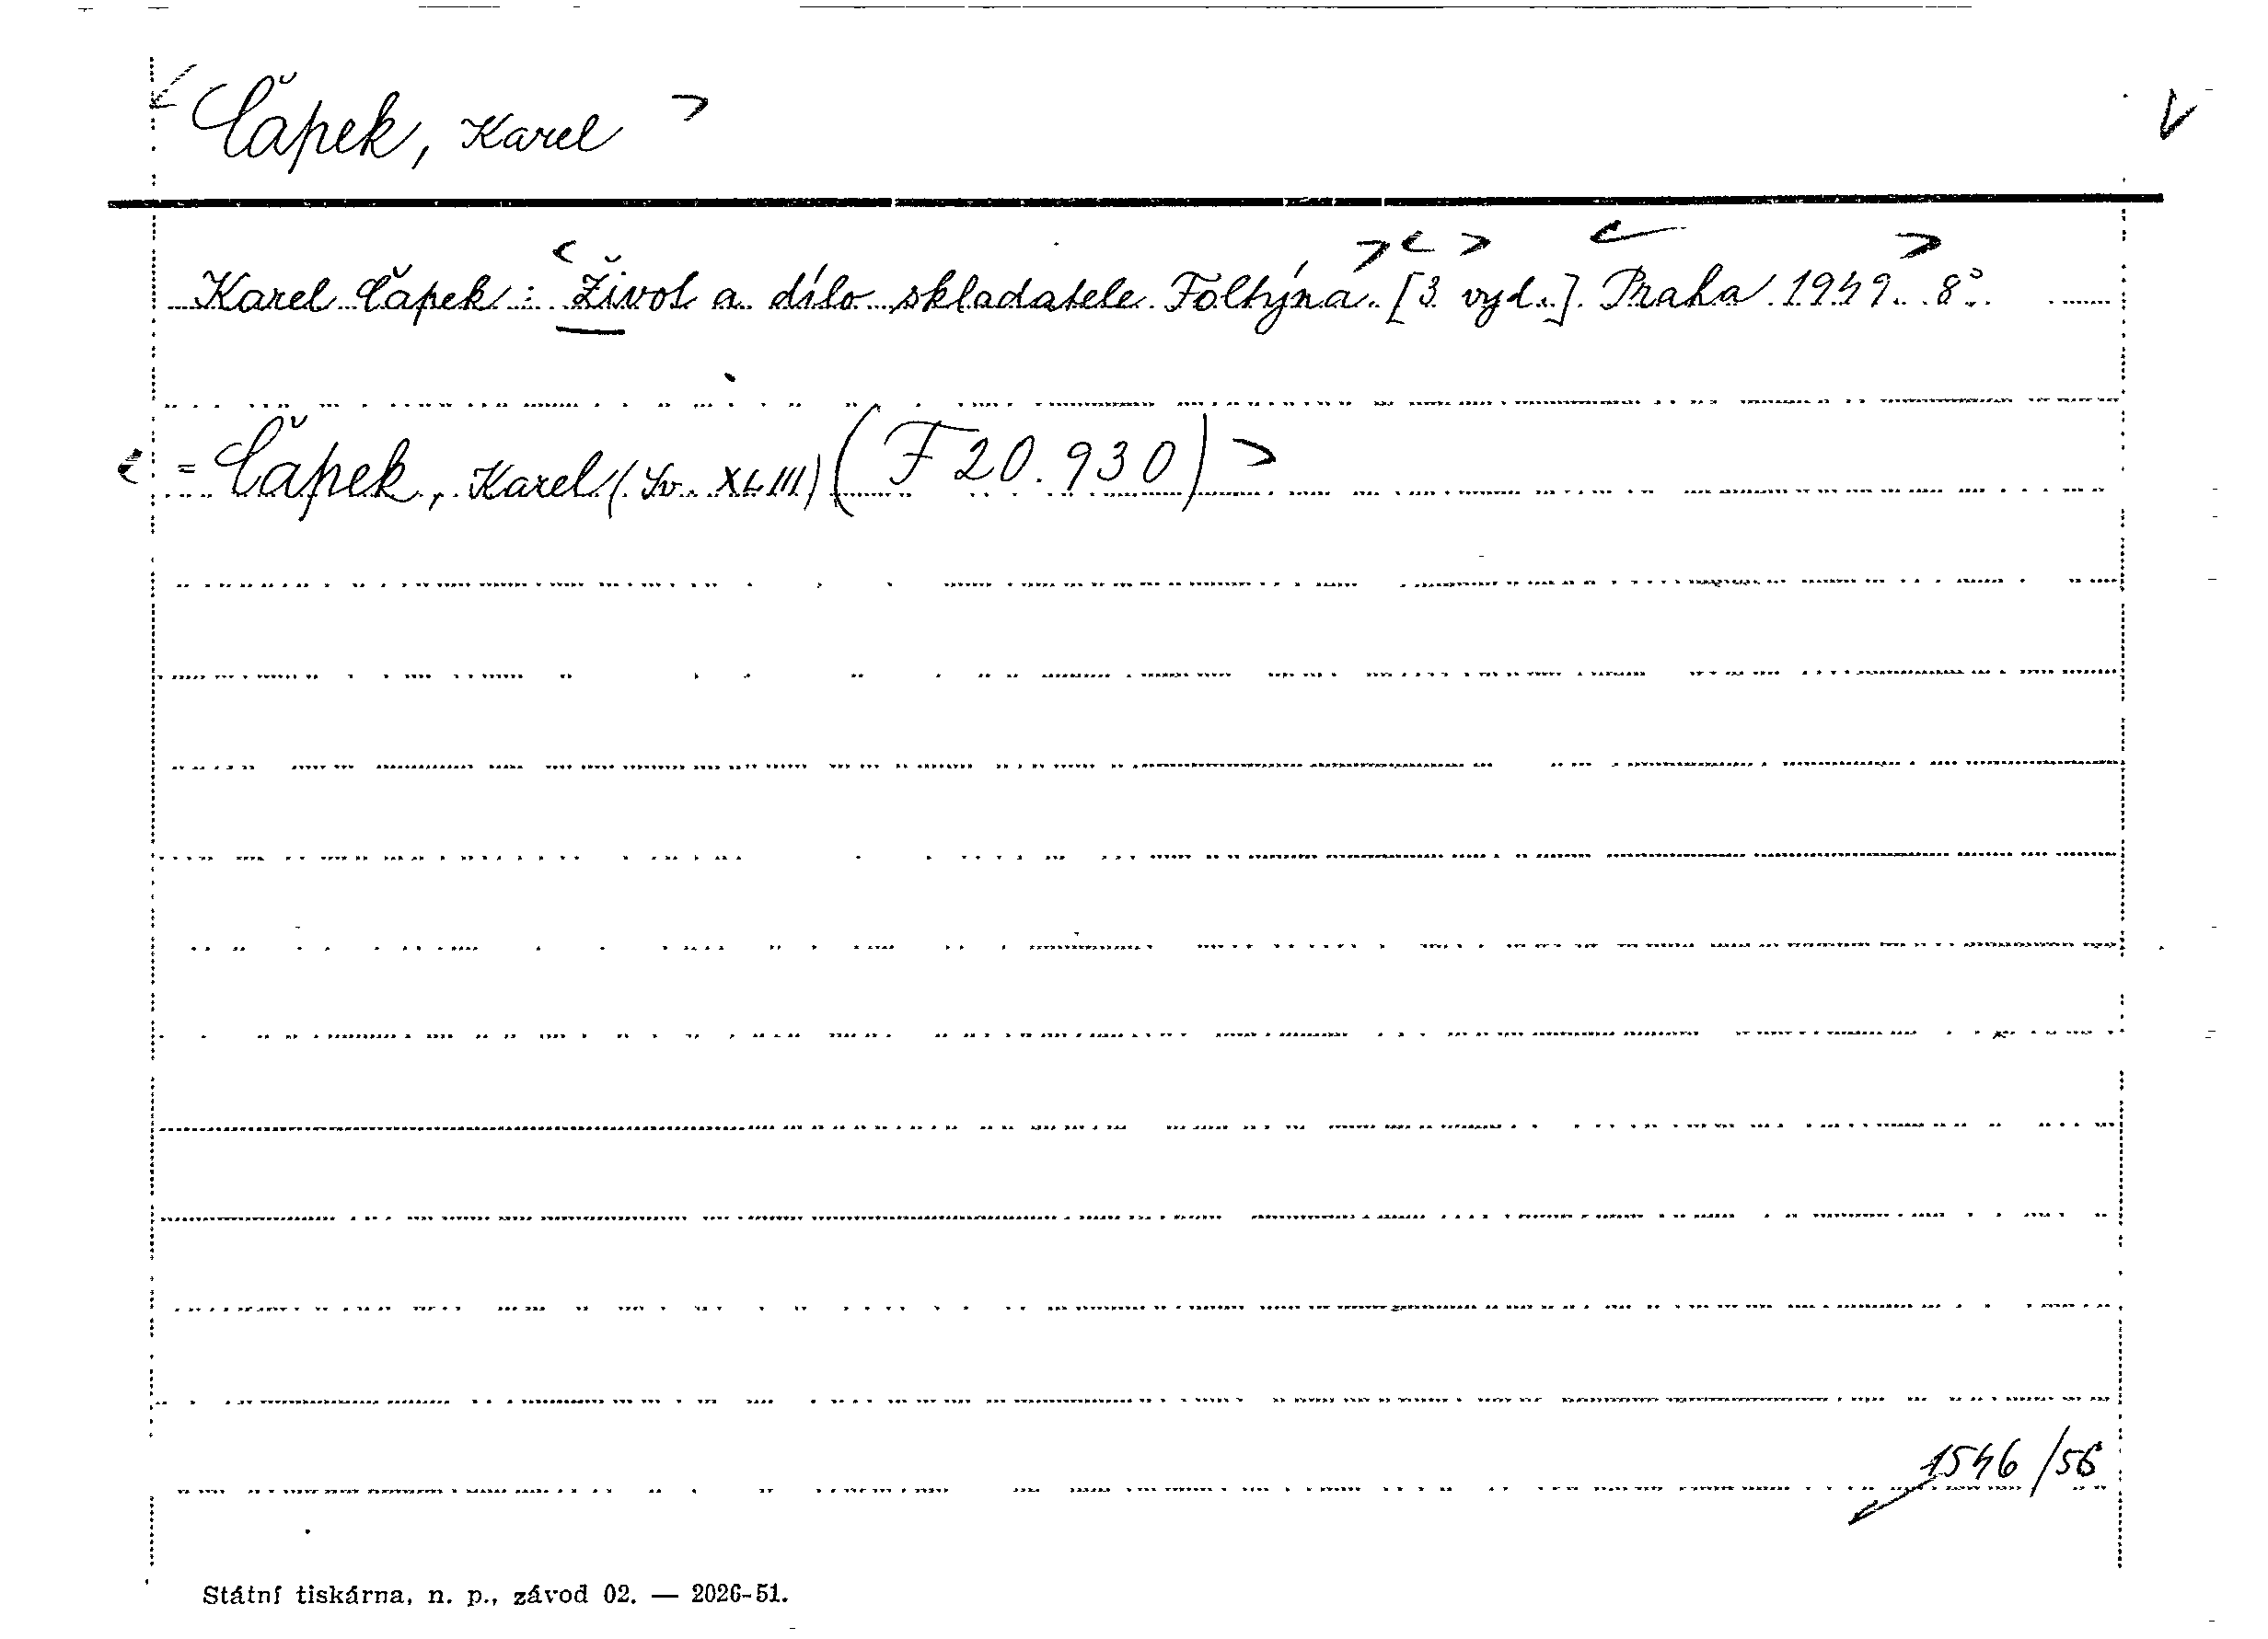 Čapek, Karel
Karel Čapek: Život a dílo skladatele Foltýna. [3. vyd.]. Praha 1949. 8°.
= Čapek, Karel (Sv. XLIII) (F 20.930)
1546/56
Státní tiskárna, n. p., závod 02. — 2026-51.